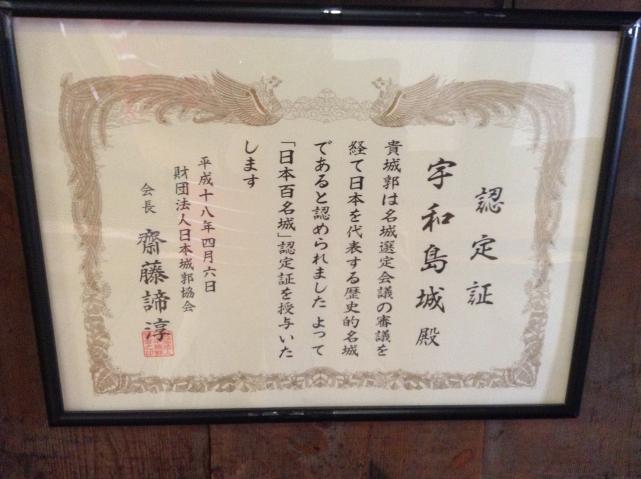 認定証
宇和島城 殿
貴城郭は名城選定会議の審議を
経て日本を代表する歴史的名城
であると認められました よって
「日本百名城」認定証を授与いた
します
平成十八年四月六日
財団法人日本城郭協会
会長 齋藤諦淳